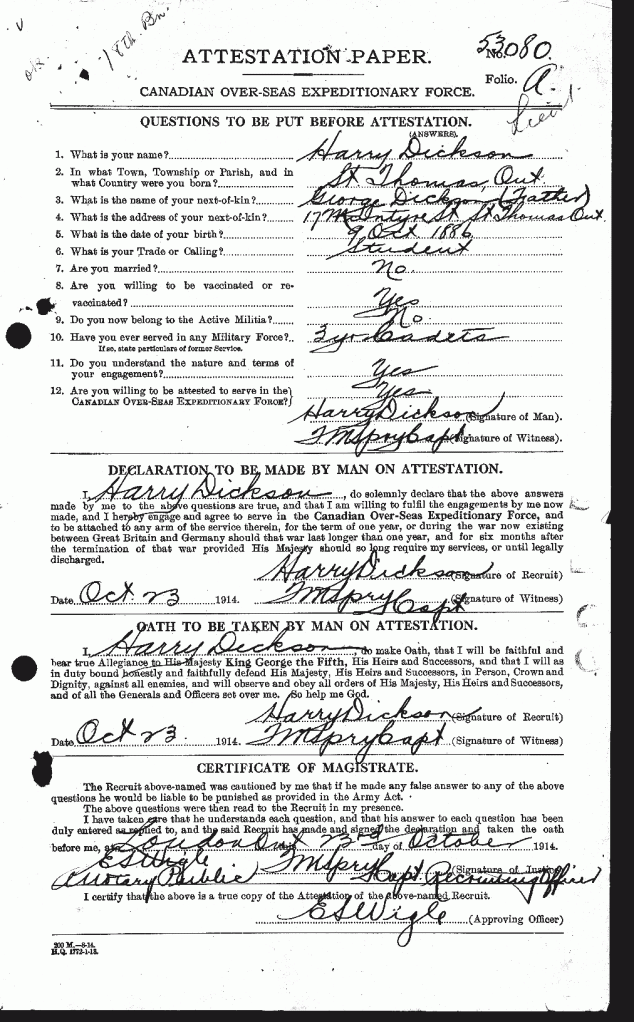 18th Bn.
ATTESTATION PAPER.
No. 53080.
Folio. A.
Lieut.
CANADIAN OVER-SEAS EXPEDITIONARY FORCE.
QUESTIONS TO BE PUT BEFORE ATTESTATION.
(ANSWERS).
1. What is your name? Harry Dickson
2. In what Town, Township or Parish, and in
what Country were you born? St Thomas, Ont.
3. What is the name of your next-of-kin? George Dickson (Father)
4. What is the address of your next-of-kin? 17 McIntyre St. St Thomas Ont.
5. What is the date of your birth? 9 Oct 1886
6. What is your Trade or Calling? Student
7. Are you married? No.
8. Are you willing to be vaccinated or re-
vaccinated? Yes
9. Do you now belong to the Active Militia? No.
10. Have you ever served in any Military Force? 3 yr Cadets
If so, state particulars of former Service.
11. Do you understand the nature and terms of
your engagement? Yes
12. Are you willing to be attested to serve in the Yes
CANADIAN OVER-SEAS EXPEDITIONARY FORCE?
Harry Dickson (Signature of Man).
T M Spry Capt (Signature of Witness).
DECLARATION TO BE MADE BY MAN ON ATTESTATION.
I, Harry Dickson, do solemnly declare that the above answers
made by me to the above questions are true, and that I am willing to fulfil the engagements by me now
made, and I hereby engage and agree to serve in the Canadian Over-Seas Expeditionary Force, and
to be attached to any arm of the service therein, for the term of one year, or during the war now existing
between Great Britain and Germany should that war last longer than one year, and for six months after
the termination of that war provided His Majesty should so long require my services, or until legally
discharged.
Harry Dickson (Signature of Recruit)
Date Oct 23 1914. T M Spry Capt (Signature of Witness)
OATH TO BE TAKEN BY MAN ON ATTESTATION.
I, Harry Dickson, do make Oath, that I will be faithful and
bear true Allegiance to His Majesty King George the Fifth, His Heirs and Successors, and that I will as
in duty bound honestly and faithfully defend His Majesty, His Heirs and Successors, in Person, Crown and
Dignity, against all enemies, and will observe and obey all orders of His Majesty, His Heirs and Successors,
and of all the Generals and Officers set over me. So help me God.
Harry Dickson (Signature of Recruit)
Date Oct 23. 1914. T M Spry Capt (Signature of Witness)
CERTIFICATE OF MAGISTRATE.
The Recruit above-named was cautioned by me that if he made any false answer to any of the above
questions he would be liable to be punished as provided in the Army Act.
The above questions were then read to the Recruit in my presence.
I have taken care that he understands each question, and that his answer to each question has been
duly entered as replied to, and the said Recruit has made and signed the declaration and taken the oath
before me, at London Ont this 23rd day of October 1914.
E S Wigle T M Spry (Signature of Justice)
A Notary Public Capt Recruiting Officer
I certify that the above is a true copy of the Attestation of the above-named Recruit.
E S Wigle (Approving Officer)
200 M.—8-14.
H.Q. 1772-1-13.